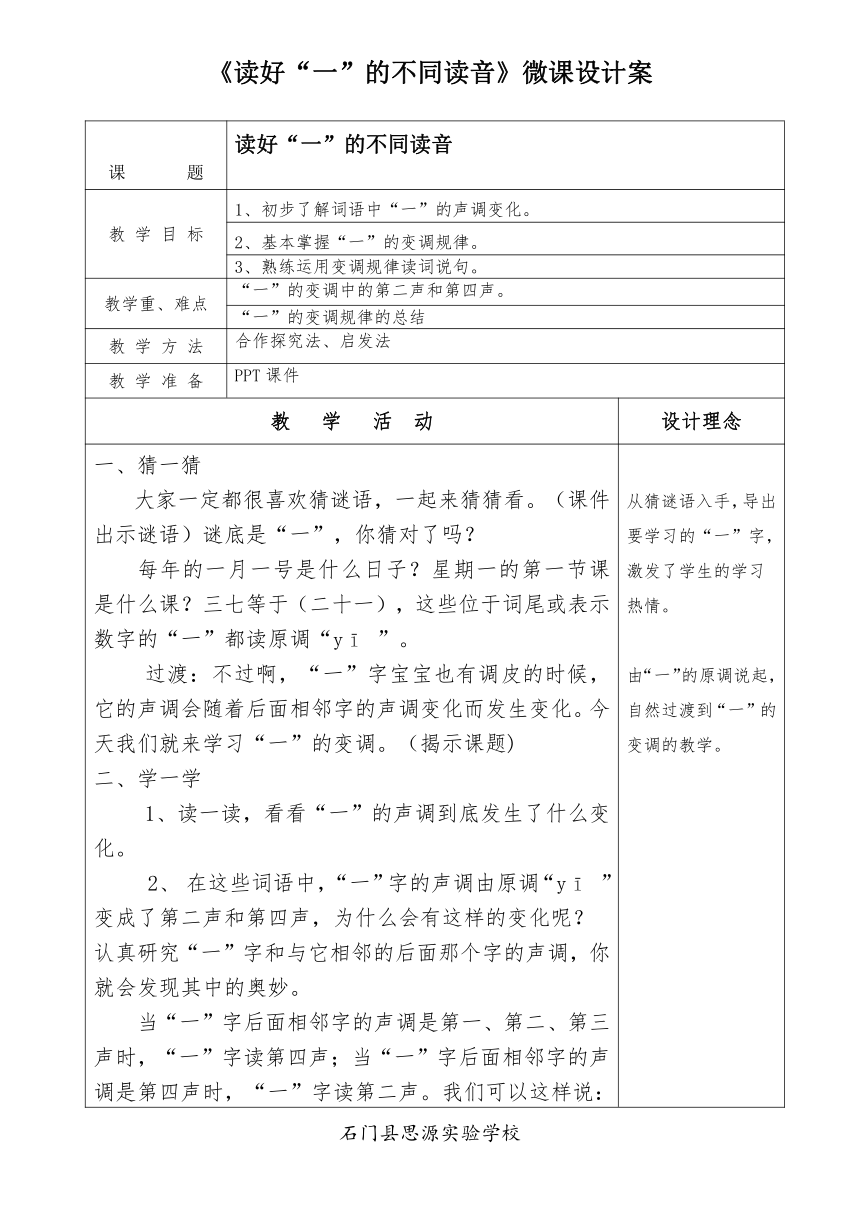 《读好“一”的不同读音》微课设计案
课 题
读好“一”的不同读音
教 学 目 标
1、初步了解词语中“一”的声调变化。
2、基本掌握“一”的变调规律。
3、熟练运用变调规律读词说句。
教学重、难点
“一”的变调中的第二声和第四声。
“一”的变调规律的总结
教 学 方 法
合作探究法、启发法
教 学 准 备
PPT 课件
教 学 活 动
设计理念
一、猜一猜
大家一定都很喜欢猜谜语，一起来猜猜看。（课件
出示谜语）谜底是“一”，你猜对了吗？
每年的一月一号是什么日子？星期一的第一节课
是什么课？三七等于（二十一），这些位于词尾或表示
数字的“一”都读原调“yī ”。
过渡：不过啊，“一”字宝宝也有调皮的时候，
它的声调会随着后面相邻字的声调变化而发生变化。今
天我们就来学习“一”的变调。（揭示课题)
二、学一学
1、读一读，看看“一”的声调到底发生了什么变
化。
2、 在这些词语中，“一”字的声调由原调“yī ”
变成了第二声和第四声，为什么会有这样的变化呢？
认真研究“一”字和与它相邻的后面那个字的声调，你
就会发现其中的奥妙。
当“一”字后面相邻字的声调是第一、第二、第三
声时，“一”字读第四声；当“一”字后面相邻字的声
调是第四声时，“一”字读第二声。我们可以这样说：
从猜谜语入手，导出
要学习的“一”字，
激发了学生的学习
热情。
由“一”的原调说起，
自然过渡到“一”的
变调的教学。
石门县思源实验学校